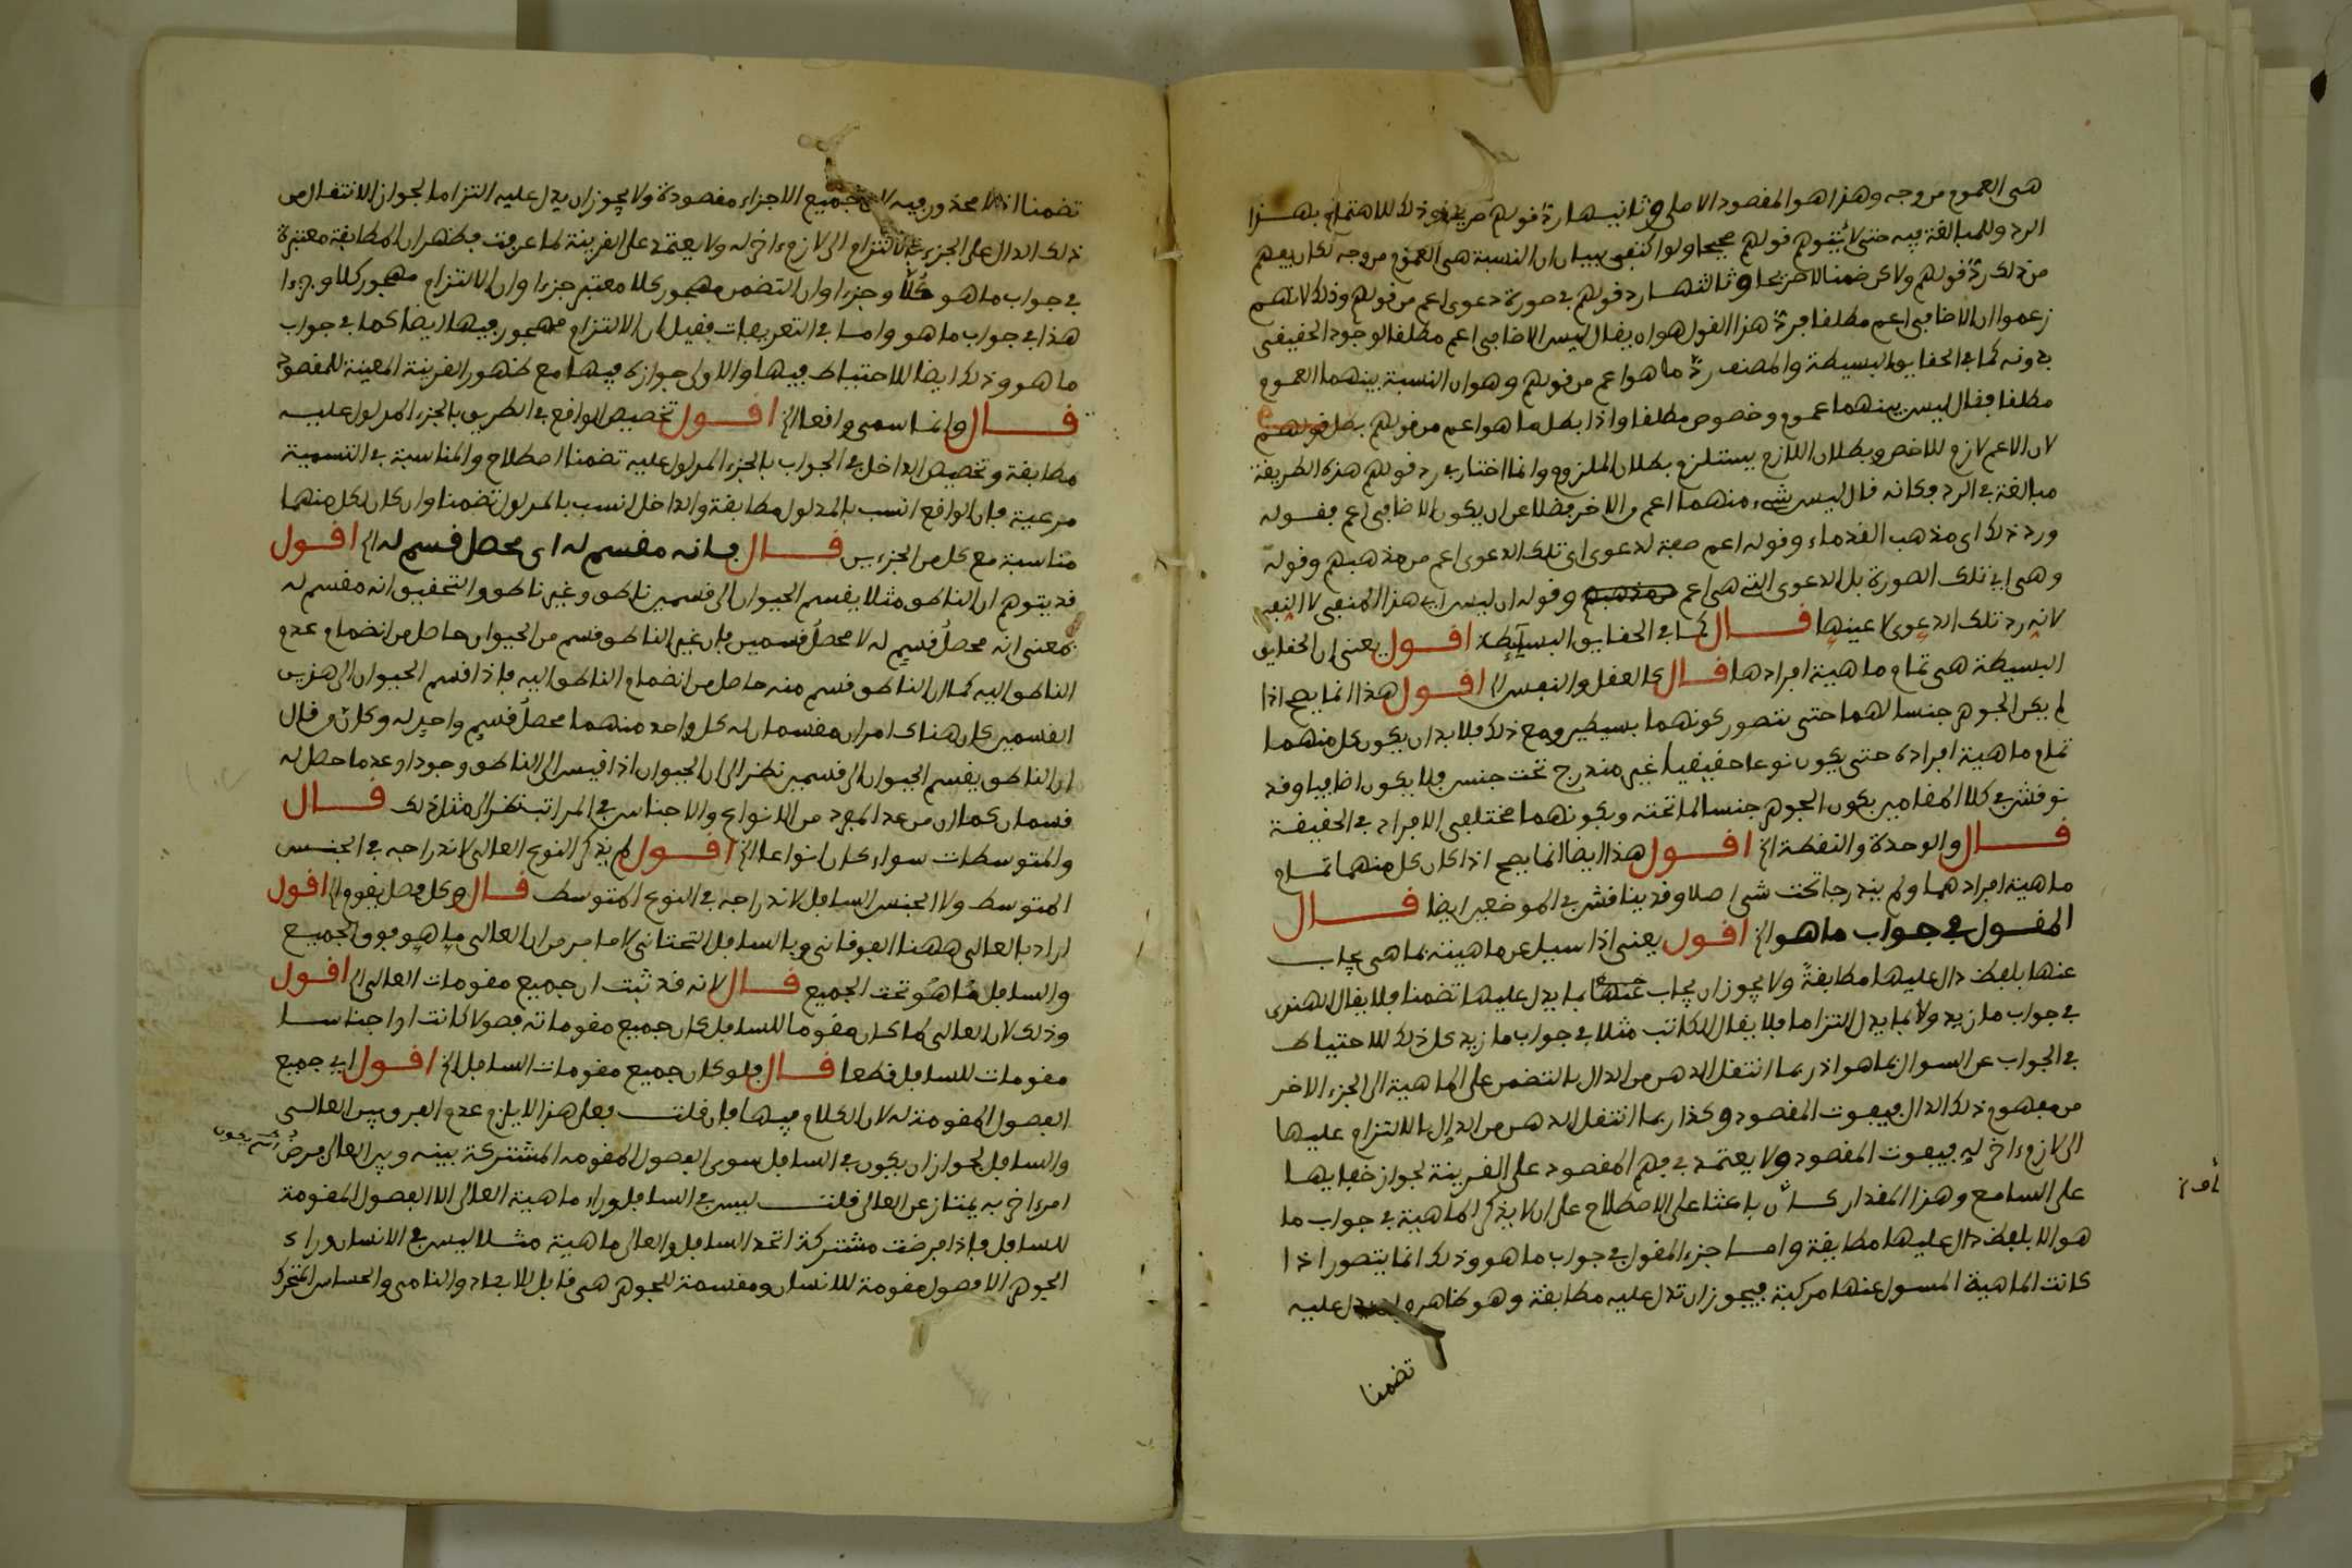 هى العموم من وجه وهذا هو المقصود الاصلى وثانيها رد قولهم صريحا وذلك للاهتمام بهذا
الرد وللمبالغة فيه حتى لا يتوهم قولهم صحيحا ولو اكتفى ببيان ان النسبة هى العموم من وجه لكان يفهم
من ذلك رد قولهم ولاكن ضمنا لا صريحا وثالثها رد قولهم فى صورة دعوى اعم من قولهم وذلك لانهم
زعموا ان الاضافى اعم مطلقا فرد هذا القول هو ان يقال ليس الاضافى اعم مطلقا لوجود الحقيقى
بدونه كما فى الحقايق البسيطة والمصنف رد ما هو اعم من قولهم وهو ان النسبة بينهما العموم
مطلقا فقال ليس بينهما عموم وخصوص مطلقا واذا بطل ما هو اعم من قولهم بطل قولهم
لان الاعم لازم للاخص وبطلان اللازم يستلزم بطلان الملزوم وانما اختار فى رد قولهم هذه الطريقة
مبالغة فى الرد فكانه قال ليس شىء منهما اعم من الاخر فضلا عن ان يكون الاضافى اعم فقوله
ورد ذلك اى مذهب القدماء وقوله اعم صفة لدعوى اى تلك الدعوى اعم من مذهبهم وقوله
وهى اى تلك الصورة بل الدعوى التى هى اعم من مذهبهم وقوله ان ليس اى هذا المنفى لا النفى
لانه رد تلك الدعوى لا عينها قال كما فى الحقايق البسيطة اقول يعنى ان الحقايق
البسيطة هى تمام ماهية افرادها قال كالعقل والنفس الخ اقول هذا انما يصح اذا
لم يكن الجوهر جنسا لهما حتى يتصور كونهما بسيطين ومع ذلك فلا بد ان يكون كل منهما
تمام ماهية افراده حتى يكون نوعا حقيقيا غير مندرج تحت جنس فلا يكون اضافيا وقد
نوقش فى كلا المقامين بكون الجوهر جنسا لما تحته وبكونهما مختلفى الافراد فى الحقيقة
قال والوحدة والنقطة الخ اقول هذا ايضا انما يصح اذا كان كل منهما تمام
ماهية افرادهما ولم يندرجا تحت شى اصلا وقد يناقش فى الموضعين ايضا قال
المقول فى جواب ما هو الخ اقول يعنى اذا سيل عن ماهيته بما هى يجاب
عنها بلفظ دال عليها مطابقة ولا يجوز ان يجاب عنها بما يدل عليها تضمنا فلا يقال الهندى
فى جواب ما زيد ولا بما يدل التزاما فلا يقال الكاتب مثلا فى جواب ما زيد كل ذلك للاحتياط
فى الجواب عن السوال بما هو اذ ربما انتقل الذهن من الدال بالتضمن على الماهية الى الجزء الاخر
من مفهوم ذلك الدال فيفوت المقصود وكذا ربما انتقل الذهن من الدال بالالتزام عليها
الى لازم ءاخر له فيفوت المقصود ولا يعتمد فى فهم المقصود على القرينة لجواز خفايها
على السامع وهذا المقدار كان باعثا على الاصطلاح على ان لا يذكر الماهية فى جواب ما
هو الا بلفظ دال عليها مطابقة واما جزء المقول فى جواب ما هو وذلك انما يتصور اذا
كانت الماهية المسول عنها مركبة فيجوز ان تدل عليه مطابقة وهو ظاهر وان يدل عليه
تضمنا
تضمنا اذ لا محذور فيه لان جميع الاجزاء مقصودة ولا يجوز ان يدل عليه التزاما لجواز الانتقال من
ذلك الدال على الجزء بالالتزام الى لازم ءاخر له ولا يعتمد على القرينة لما عرفت فظهر ان المطابقة معتبرة
فى جواب ما هو كلا وجزءا وان التضمن مهجور كلا معتبر جزءا وان الالتزام مهجور كلا وجزءا
هذا فى جواب ما هو واما فى التعريفات فقيل ان الالتزام مهجور فيها ايضا كما فى جواب
ما هو وذلك ايضا للاحتياط فيها والاولى جوازه فيها مع ظهور القرينة المعينة للمقصود
قال وانما سمى واقعا الخ اقول تخصيص الواقع فى الطريق بالجزء المدلول عليه
مطابقة وتخصيص الداخل فى الجواب بالجزء المدلول عليه تضمنا اصطلاح والمناسبة فى التسمية
مرعية فان الواقع انسب بالمدلول مطابقة والداخل انسب بالمدلول تضمنا وان كان لكل منهما
مناسبة مع كل من الجزءين قال فانه مقسم له اى محصل قسم له الخ اقول
قد يتوهم ان الناطق مثلا يقسم الحيوان الى قسمين ناطق وغير ناطق والتحقيق انه مقسم له
بمعنى انه محصل قسيم له لا محصل قسمين فان غير الناطق قسم من الحيوان حاصل من انضمام عدم
الناطق اليه كما ان الناطق قسم منه حاصل من انضمام الناطق اليه فاذا قسم الحيوان الى هذين
القسمين كان هناك امران مقسمان له كل واحد منهما محصل قسم واحد له وكان من قال
ان الناطق يقسم الحيوان الى قسمين نظر الى ان الحيوان اذا قيس الى الناطق وجودا وعدما حصل له
قسمان كما ان من عد المفرد من الانواع والاجناس فى المراتب نظر الى مثل ذلك قال
والمتوسطات سواء كان انواعا الخ اقول لم يذكر النوع العالى لاندراجه فى الجنس
المتوسط ولا الجنس السافل لاندراجه فى النوع المتوسط قال وكل فصل يقوم الخ اقول
اراد بالعالى ههنا الفوقانى وبالسافل التحتانى لا ما مر من ان العالى ما هو فوق الجميع
والسافل ما هو تحت الجميع قال لانه قد ثبت ان جميع مقومات العالى الخ اقول
وذلك لان العالى لما كان مقوما للسافل كان جميع مقوماته فصولا كانت او اجناسا
مقومات للسافل قطعا قال فلو كان جميع مقومات السافل الخ اقول اى جميع
الفصول المقومة له لان الكلام فيها فان قلت فعل هذا لا يلزم عدم الفرق بين العالى
والسافل لجواز ان يكون فى السافل سوى الفصول المقومة المشتركة بينه وبين العالى
امر ءاخر به يمتاز عن العالى قلت ليس فى السافل وراء ماهية العالى الا الفصول المقومة
للسافل فاذا فرضت مشتركة اتحد السافل والعالى ماهية مثلا ليس فى الانسان وراء
الجوهر الا فصول مقومة للانسان ومقسمة للجوهر هى قابل للابعاد والنامى والحساس المتحرك